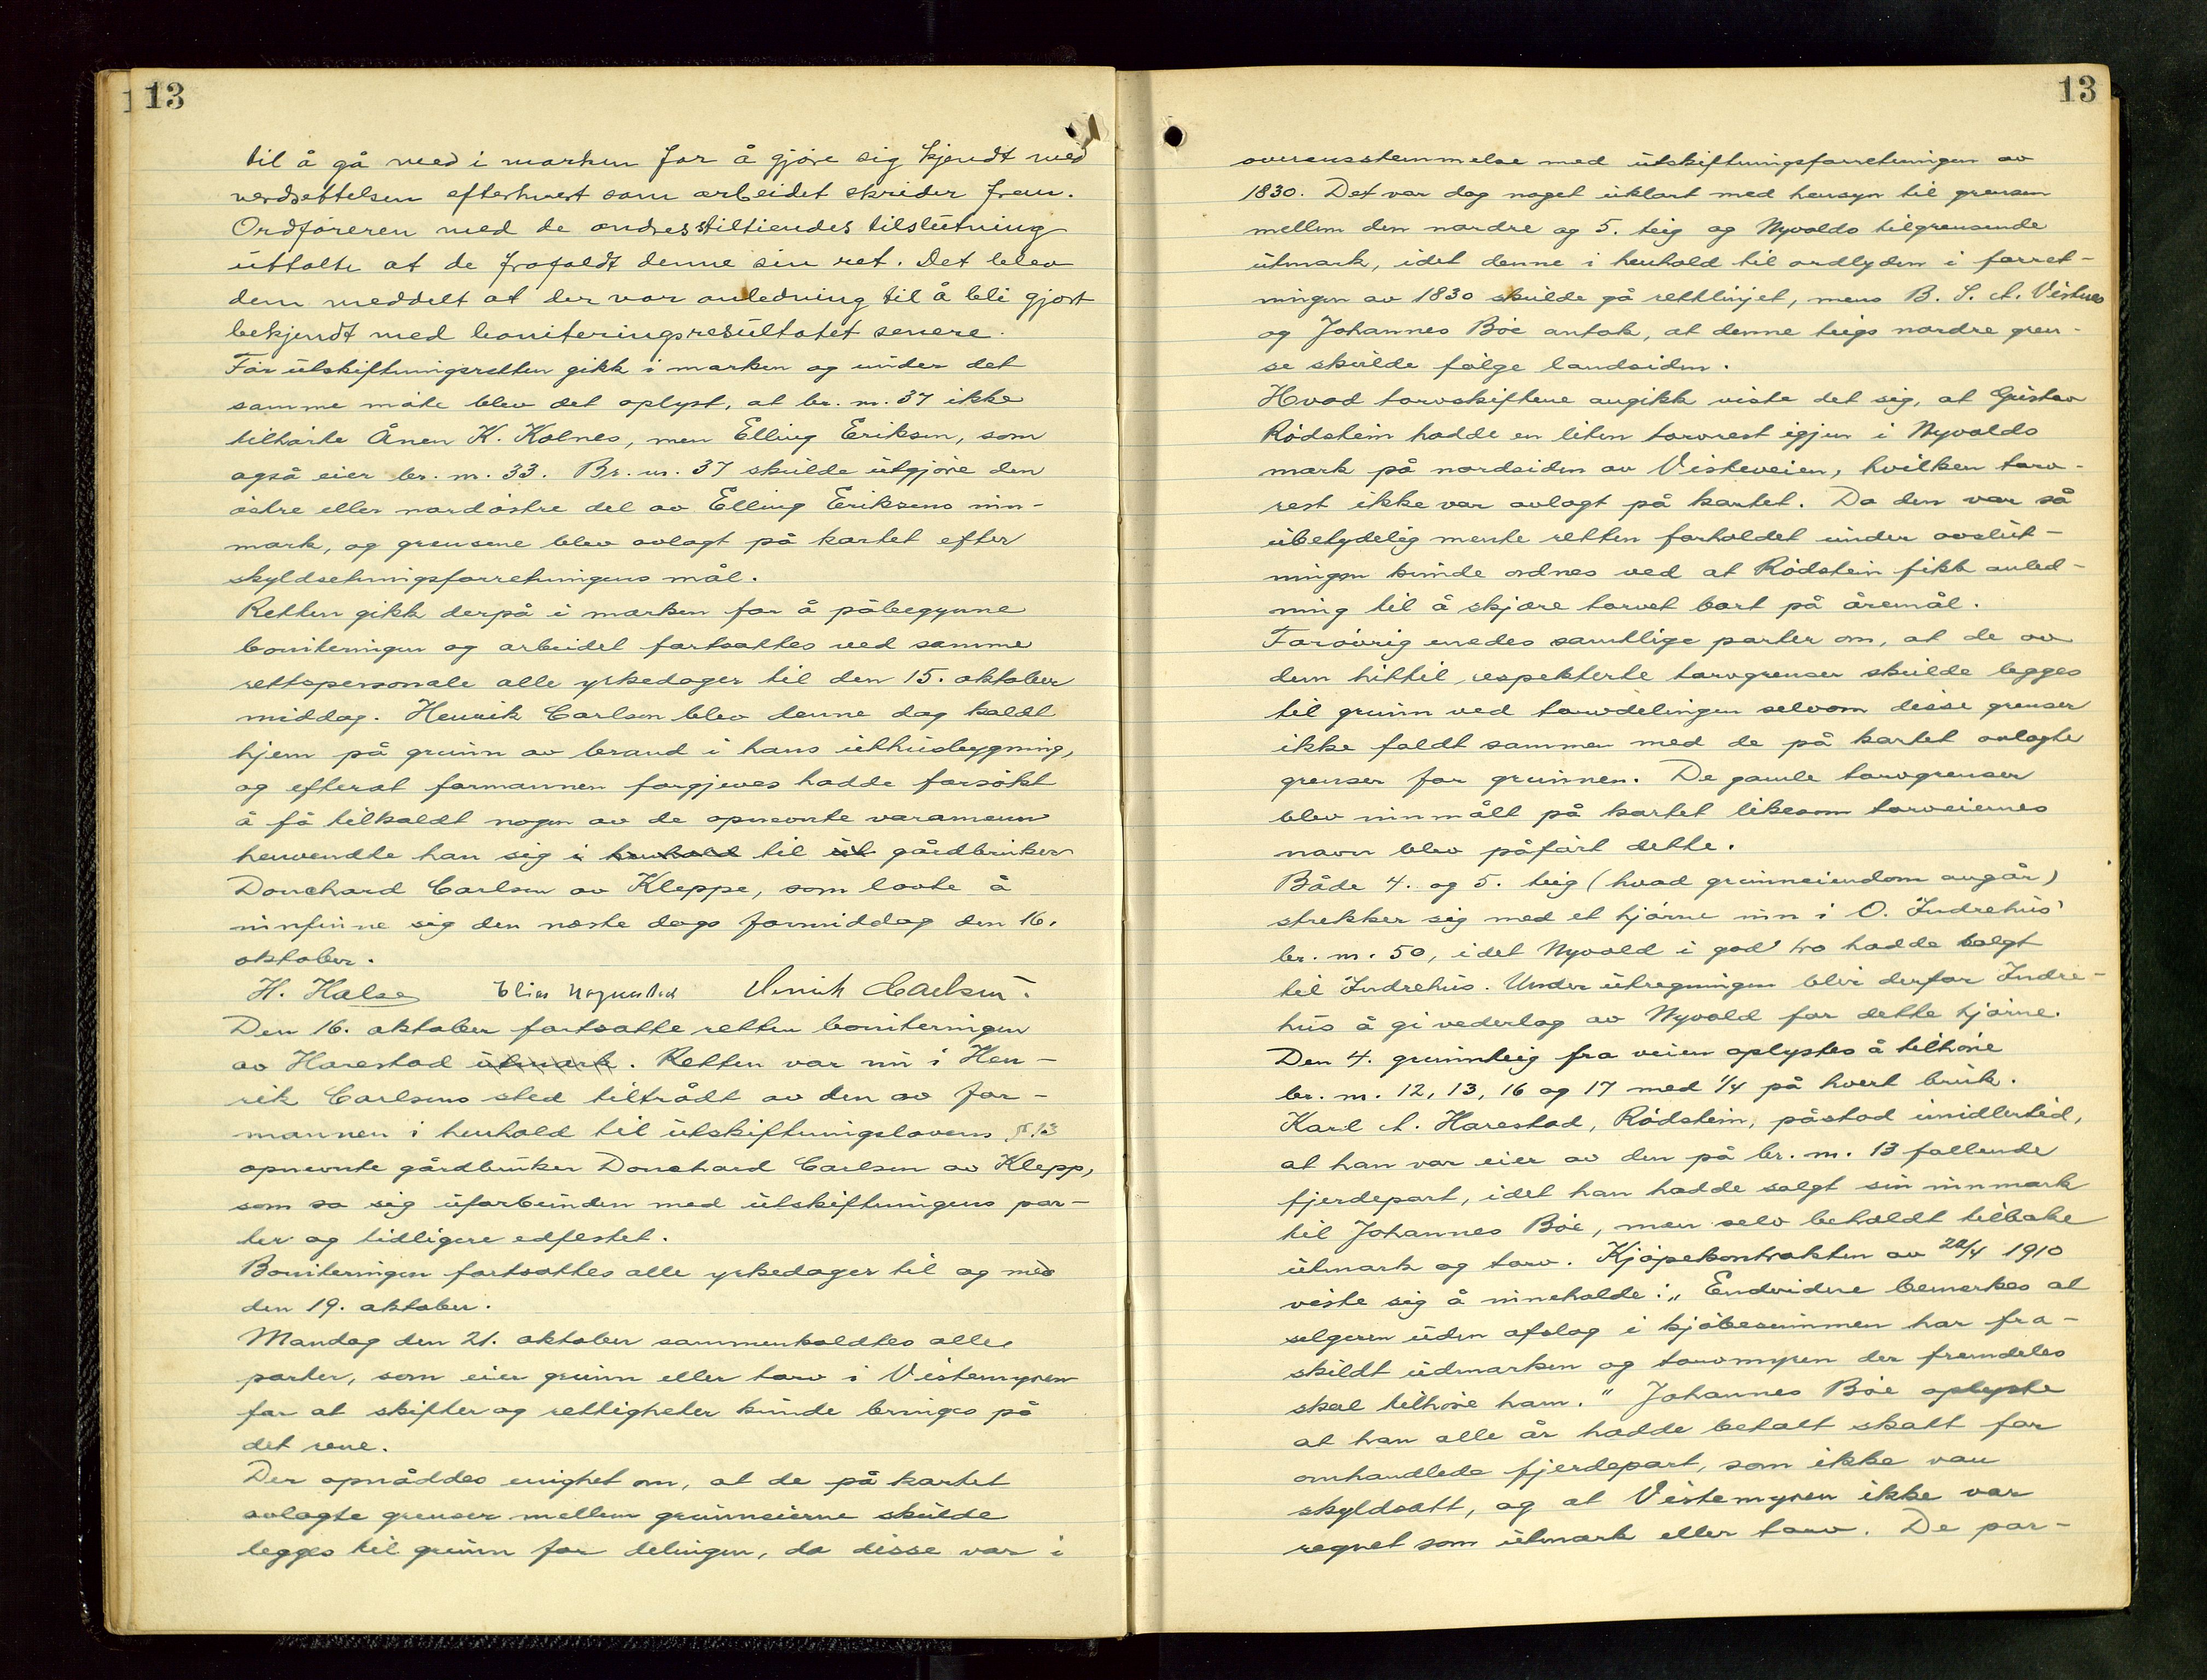 13
til å gå med i marken for å gjøre sig kjendt med
verdsettelsen efterhvert som arbeidet skrider frem.
Ordføreren med de andres stiltiendes tilslutning
uttalte at de frafaldt denne sin ret. Det blev
dem meddelt at der var anledning til å bli gjort
bekjendt med boniteringsresultatet senere.
Før utskiftningsretten gikk i marken og under det
samme møte blev det oplyst, at br. nr. 37 ikke
tilhørte Ånen K. Kolnes, men Elling Eriksen, som
også eier br. nr. 33. Br. nr. 37 skulde utgjøre den
østre eller nordøstre del av Elling Eriksens inn-
mark, og grensene blev avlagt på kartet efter
skyldsetningsforretningens mål.
Retten gikk derpå i marken for å påbegynne
boniteringen og arbeidet fortsattes ved samme
rettspersonale alle yrkedager til den 15. oktober
middag. Henrik Carlsen blev denne dag kaldt
hjem på grunn av brand i hans uthusbygning,
og efterat formannen forgjeves hadde forsøkt
å få tilkaldt nogen av de opnevnte varamenn
henvendte han sig i henhold til ut gårdbruker
Donchard Carlsen av Kleppe, som lovte å
innfinne sig den næste dags formiddag den 16.
oktober.
H. Halse Elias Henrik Carlsen.
Den 16. oktober fortsatte retten boniteringen
av Harestad utmark. Retten var nu i Hen-
rik Carlsens sted tiltrådt av den av for-
mannen i henhold til utskiftningslovens § 13
opnevnte gårdbruker Donchard Carlsen av Klepp,
som sa sig uforbunden med utskiftningens par-
ter og tidligere edfestet.
Boniteringen fortsattes alle yrkedager til og med
den 19. oktober.
Mandag den 21. oktober sammenkaldtes alle
parter, som eier grunn eller torv i Vistemyren
for at skifter og rettigheter kunde bringes på
det rene.
Der opnåddes enighet om, at de på kartet
avlagte grenser mellem grunneierne skulde
legges til grunn for delingen, da disse var i
13
overensstemmelse med utskiftningsforretningen av
1830. Det var dog noget uklart med hensyn til grensen
mellem den nordre og 5. teig og Nyvolds tilgrensende
utmark, idet denne i henhold til ordlyden i forret-
ningen av 1830 skulde gå rettlinjet, mens B. S. A. Vistnes
og Johannes Bøe antok, at denne teigs nordre gren-
se skulde følge landsiden.
Hvad torvskiftene angikk viste det sig, at Gustav
Rødstein hadde en liten torvrest igjen i Nyvolds
mark på nordsiden av Visteveien, hvilken torv-
rest ikke var avlagt på kartet. Da den var så
ubetydelig mente retten forholdet under avslut-
ningen kunde ordnes ved at Rødstein fikk anled-
ning til å skjære torvet bort på åremål.
Forøvrig enedes samtlige parter om, at de av
dem hittil respekterte torvgrenser skulde legges
til grunn ved torvdelingen selvom disse grenser
ikke faldt sammen med de på kartet avlagte
grenser for grunnen. De gamle torvgrenser
blev innmålt på kartet likesom torveiernes
navn blev påført dette.
Både 4. og 5. teig (hvad grunneiendom angår)
strekker sig med et hjørne inn i O. Indrehus'
br. nr. 50, idet Nyvold i god tro hadde solgt
til Indrehus. Under utregningen blir derfor Indre-
hus å gi vederlag av Nyvold for dette hjørne.
Den 4. grunnteig fra veien oplystes å tilhøre
br. nr. 12, 13, 16 og 17 med 1/4 på hvert bruk.
Karl A. Harestad, Rødstein, påstod imidlertid,
at han var eier av den på br. nr. 13 fallende
fjerdepart, idet han hadde solgt sin innmark
til Johannes Bøe, men selv beholdt tilbake
utmark og torv. Kjøpekontrakten av 22/4 1910
viste sig å inneholde: „Endvidere bemerkes at
selgeren uden afslag i kjøbesummen har fra-
skildt udmarken og torvmyren der fremdeles
skal tilhøre ham." Johannes Bøe oplyste
at han alle år hadde betalt skatt for
omhandlede fjerdepart, som ikke var
skyldsatt, og at Vistemyren ikke var
regnet som utmark eller torv. De par-